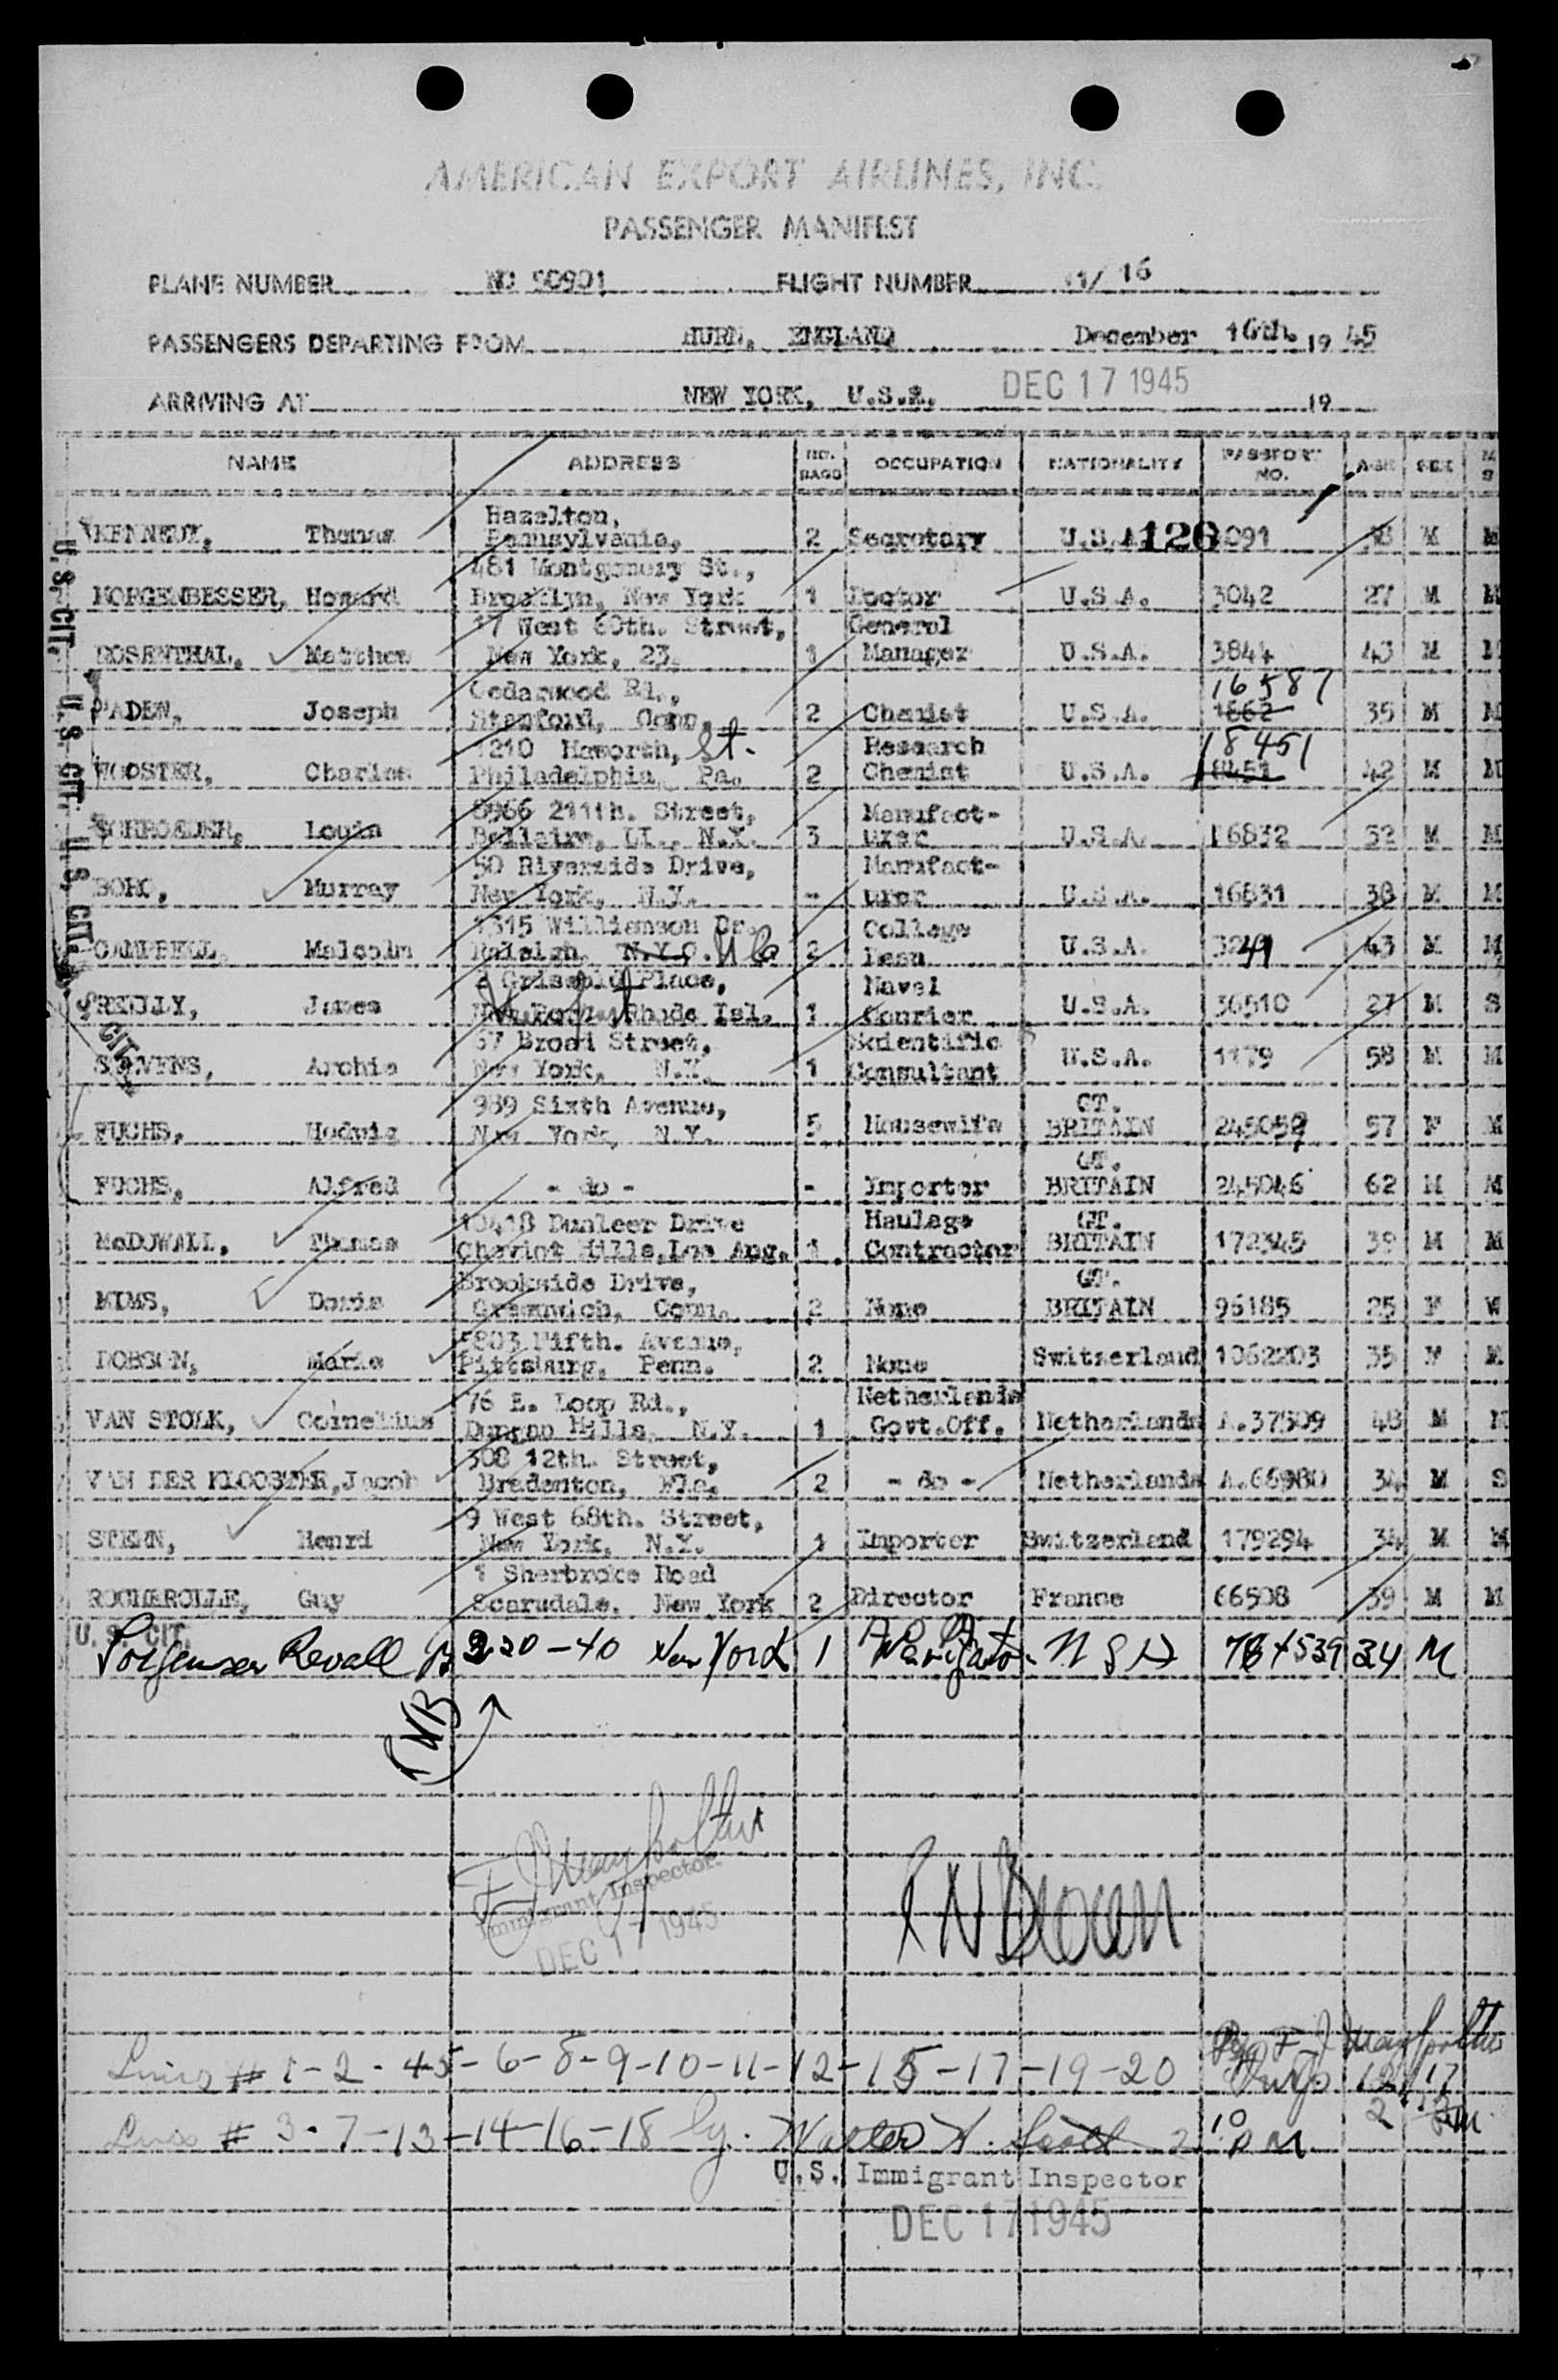 AMERICAN EXPORT AIRLINES, INC.
PASSENGER MANIFEST
PLANE NUMBER NC 90901 FLIGHT NUMBER 16
PASSENGERS DEPARTING FROM HURN, ENGLAND December 16th. 19 45
ARRIVING AT NEW YORK, U.S.A. DEC 17 1945 19
NAME ADDRESS NO. BAGS OCCUPATION NATIONALITY PASSPORT NO. AGE SEX M S
Hazelton,
Thomas Pennsylvania, 2 Secretary U.S.A. 126 M M
481 Montgomery St.,
MORGENBESSER, Howard Brooklyn, New York 1 Doctor U.S.A. 3042 27 M M
17 West 60th. Street, General
ROSENTHAL, Matthew New York, 23. 1 Manager U.S.A. 3844 43 M M
Cedarwood Rd., 16587
PADEN, Joseph Stamford, Conn. 2 Chemist U.S.A. 1662 35 M M
1210 Haworth, St. Research 18451
WOOSTER, Charles Philadelphia, Pa. 2 Chemist U.S.A. 8451 42 M M
8966 211th. Street, Manufact-
SCHROEDER, Louis Bellaire, LI., N.Y. 3 urer U.S.A. 16832 52 M M
50 Riverside Drive, Manufact-
Murray New York, N.Y. - urer U.S.A. 16831 38 M M
1315 Williamson Dr. College
CAMPBELL, Malcolm Raleigh, N.Y.C. N C 2 Dean U.S.A. 43 M M
2 Griswold Place, Naval
REILLY, James Newport Rhode Isl. 1 Courier U.S.A. 36510 27 M S
67 Broad Street, Scientific
STEVENS, Archie New York, N.Y. 1 Consultant U.S.A. 1179 58 M M
989 Sixth Avenue, GT.
FUCHS, Hedwig New York, N.Y. 5 Housewife BRITAIN 57 F M
GT.
FUCHS, Alfred - do - - Importer BRITAIN 245046 62 M M
10418 Dunleer Drive Haulage GT.
McDOWALL, Thomas Cheviot Hills, Los Ang. 1 Contractor BRITAIN 172345 39 M M
Brookside Drive, GT.
MIMS, Doris Greenwich, Conn. 2 None BRITAIN 96185 25 F W
5803 Fifth. Avenue,
DOBSON, Marie Pittsburg, Penn. 2 None Switzerland 1062203 35 F M
76 E. Loop Rd., Netherlands
VAN STOLK, Cornelius Dungan Hills, N.Y. 1 Govt.Off. Netherlands A.37509 48 M M
308 12th. Street,
VAN DER KLOOSTER, Jacob Bradenton, Fla. 2 - do - Netherlands A.66980 34 M S
9 West 68th. Street,
STERN, Henri New York, N.Y. 1 Importer Switzerland 179294 34 M M
1 Sherbroke Road
ROCHEROLLE, Guy Scarsdale, New York 2 Director France 66508 39 M M
U.S. CIT.
Revall B 220-40 New York 1 Navigator U S A 34 M
U.S. CIT. U.S. CIT. U.S. CIT. U.S. CIT.
Immigrant Inspector
DEC 17 1945
Lines # 1-2-4-5-6-8-9-10-11-12-15-17-19-20 12/17
Lines # 3-7-13-14-16-18 by Walter A. Scott 2 10 PM
U.S. Immigrant Inspector
DEC 17 1945